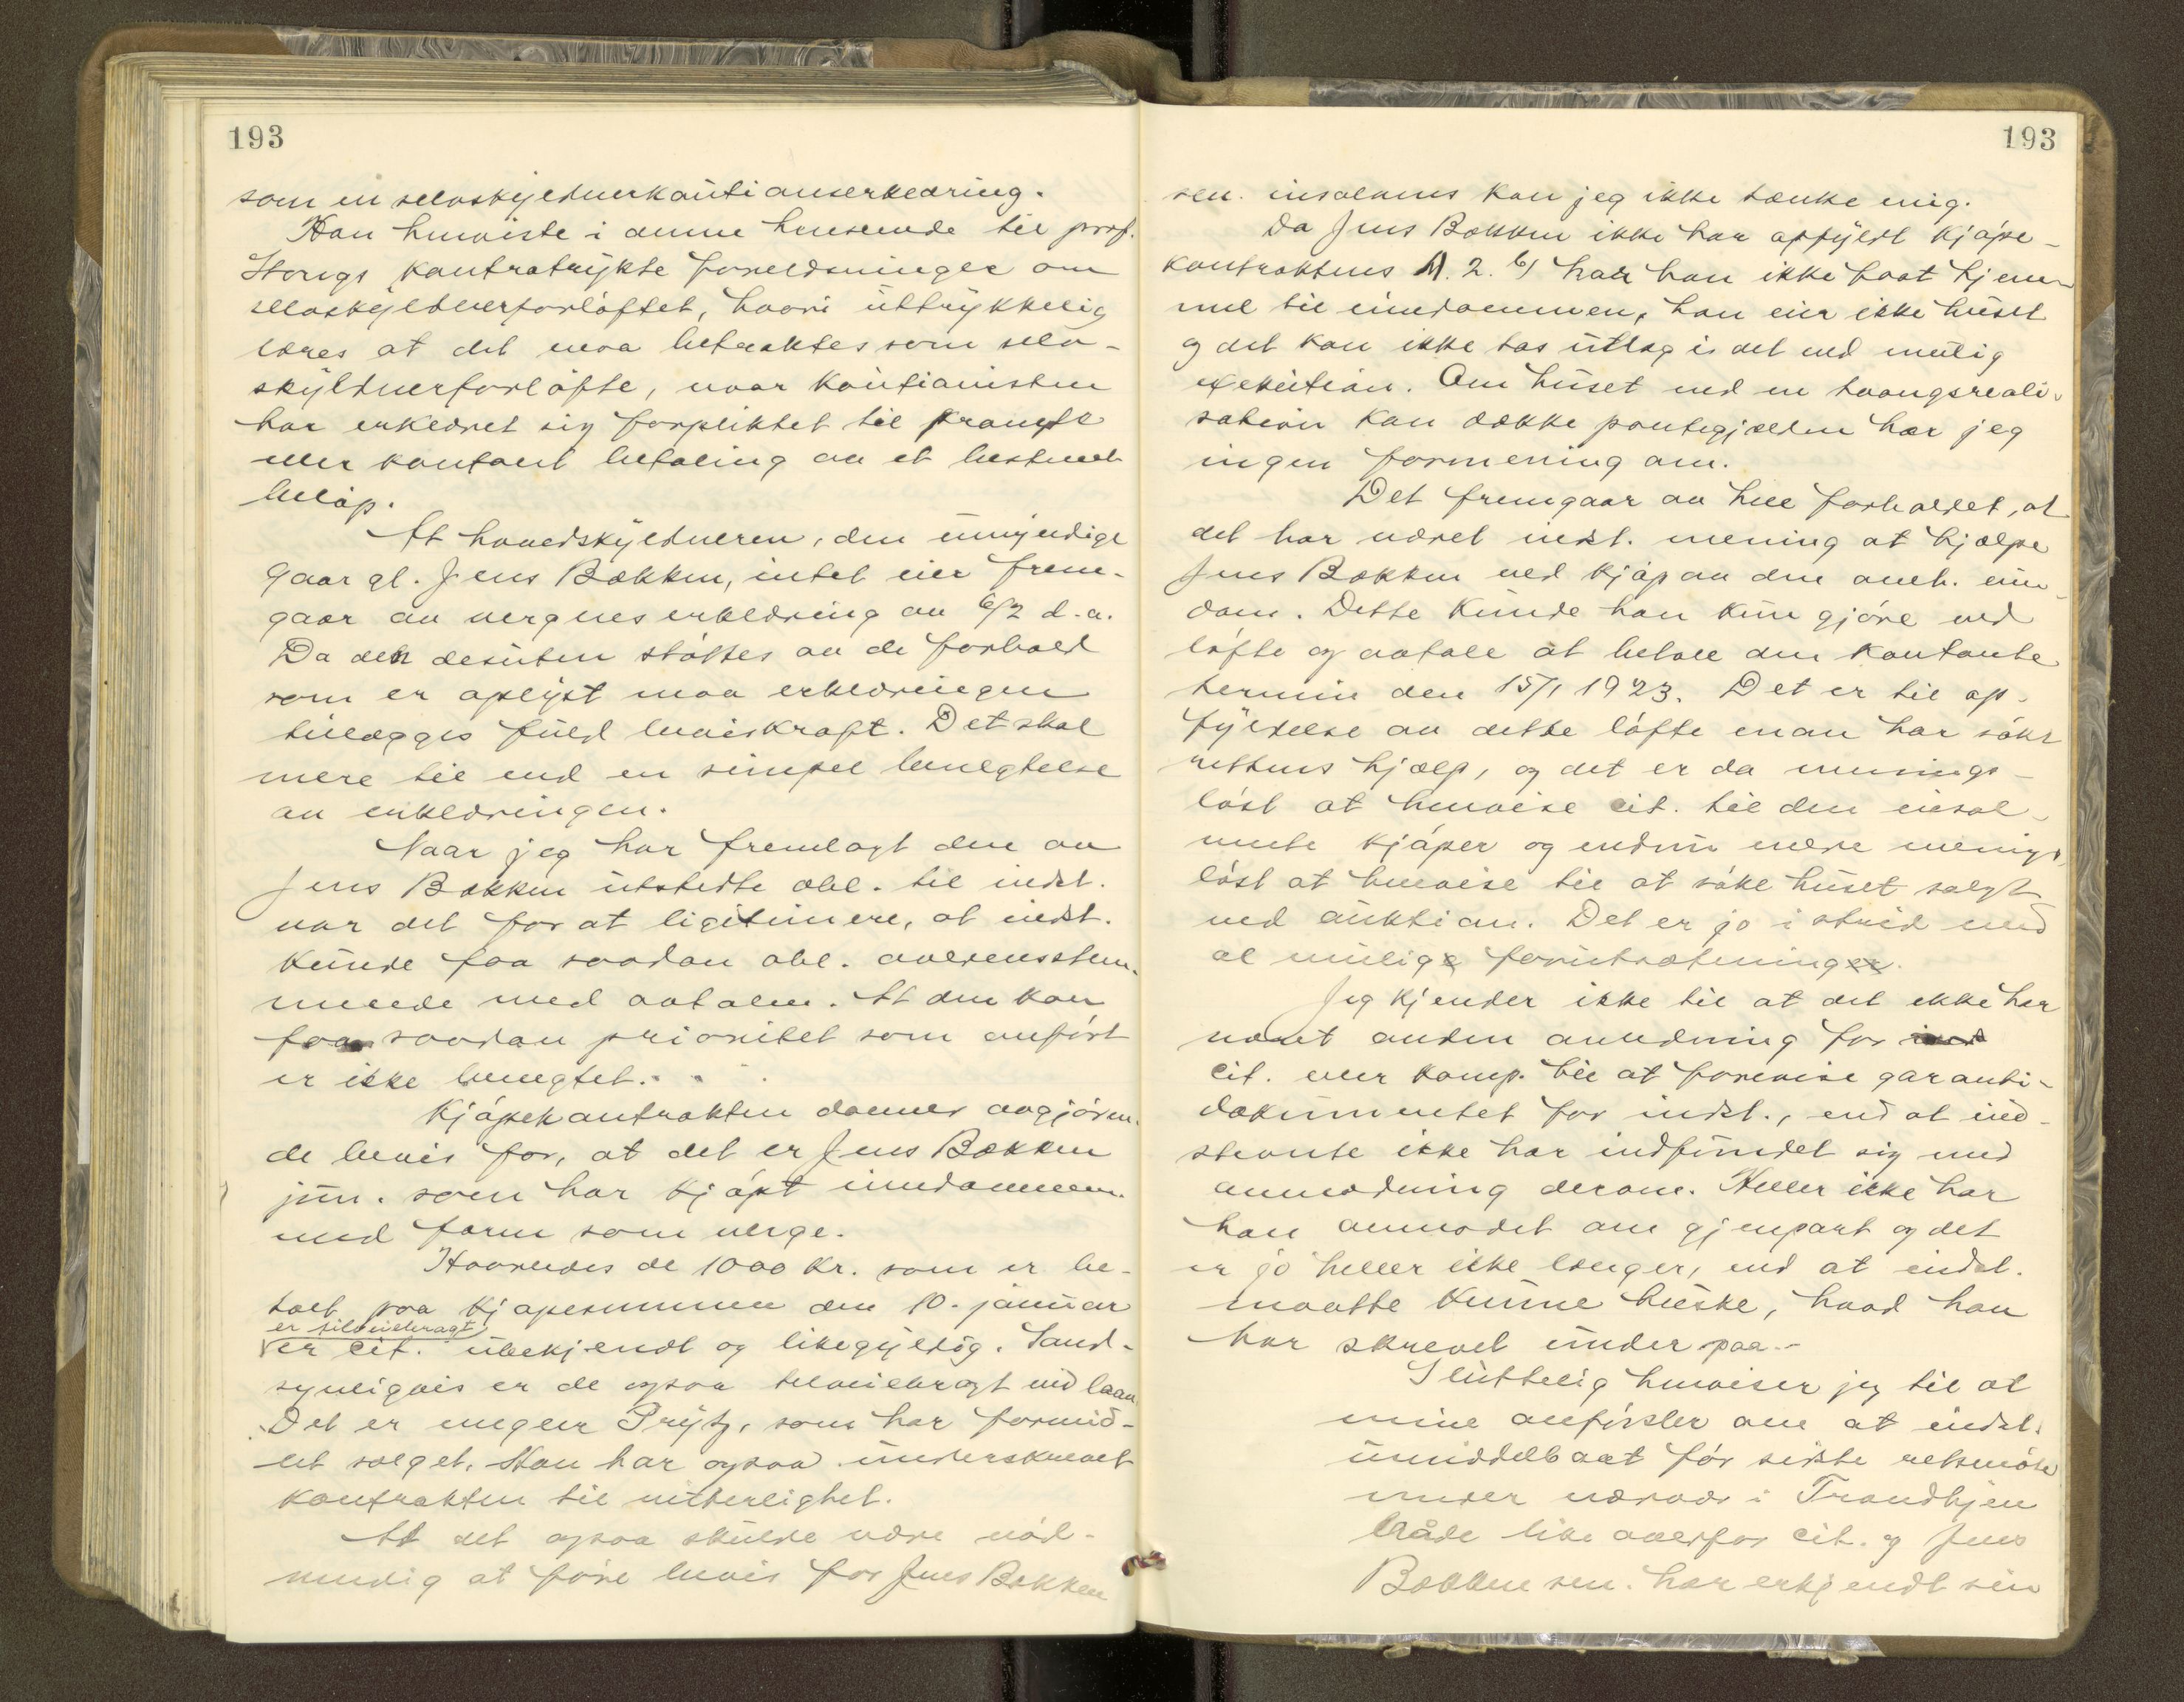 193
som en selvskyldnerkautionserklæring.
Han henviste i denne henseende til prof.
Stangs kontratrykte forelæsninger om
selvskyldnerforløftet, hvori uttrykkelig
læres at det maa betraktes som selv-
skyldnerforløfte, naar kautionisten
har erklæret sig forpliktet til prompte
eller kontant betaling av et bestemt
beløp.
At hovedskyldneren, den umyndige
gaar gl. Jens Bækken, intet eier frem-
gaar av vergnes erklæring av 6/2 d.a.
Da den desuten støttes av de forhold
som er oplyst maa erklæringen
tillægges fuld beviskraft. Det skal
mere til end en simpel benegtelse
av erklæringen.
Naar jeg har fremlagt den av
Jens Bækken utstedte obl. til indst.
var det for at ligitimere, at indst.
kunde faa saadan obl. overensstem-
mende med avtalen. At den kan
faa saadan prioritet som anført
er ikke benegtet.
Kjøpekontrakten danner avgjøren-
de bevis for, at det er Jens Bækken
jun. som har kjøpt eiendommen
med farm som verge.
Hvorledes de 1000 kr. som er be-
talt paa kjøpesummen den 10. januar
er tilveiebragt
er cit. ubekjendt og likegyldig. Sand-
synligvis er de ogsaa tilveiebragt ved laan.
Det er megler Prytz, som har formid-
let salget. Han har ogsaa underskrevet
kontrakten til vitterlighet.
At det ogsaa skulde være nød-
vendig at føre bevis for Jens Bækken
193
sen. insolvens kan jeg ikke tænke mig.
Da Jens Bækken ikke har opfyldt kjøpe-
kontraktens A. 2. b) har han ikke faat hjem-
mel til eiendommen, han eier ikke huset
og det kan ikke tas utlæg i det ved mulig
exekution. Om huset ved en tvangsreali-
sation kan dække pantegjælden har jeg
ingen formening om.
Det fremgaar av hele forholdet, at
det har været indst. mening at hjælpe
Jens Bækken ved kjøp av den omh. eien-
dom. Dette kunde han kun gjøre ved
løfte og avtale at betale den kontante
termin den 15/1 1923. Det er til op-
fyldelse av dette løfte man har søkt
rettens hjælp, og det er da menings-
løst at henvise cit. til den insol-
vente kjøper og endnu mere menings-
løst at henvise til at søke huset solgt
ved auktion. Det er jo i strid med
al mulig forutsætning.
Jeg kjender ikke til at det ikke har
været anden anledning for
cit. eller komp. til at forevise garanti-
dokumentet for indst., end at ind-
stevnte ikke har indfundet sig med
anmodning derom. Heller ikke har
han anmodet om gjenpart og det
er jo heller ikke længer, end at indst.
maatte kunne huske, hvad han
har skrevet under paa.-
Sluttelig henviser jeg til at
mine anførsler om at indst.
umiddelbart før siste retsmøte
under nærvær i Trondhjem
både like overfor cit. og Jens
Bækken sen. har erkjendt sin